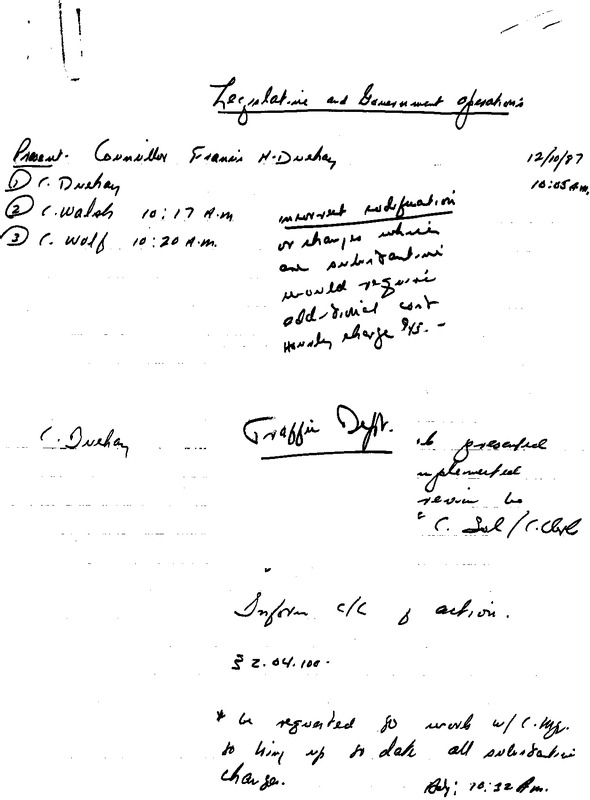 Legislative and Government Operations
Present- Councillor Francis H. Duehay
12/10/87
10:05 A.m.
1 C. Duehay
2 C. Walsh 10:17 A.m
3 C. Wolf 10:20 A.m.
incorrect codification
or changes which
are substantive
would require
additional cost
Hourly charge $45. -
C. Duehay
Traffic Dept.
presented
implemented
review
C. Sol / C. Clerk
Inform C/C of action.
§ 2.04.100.
* be requested to work w/ C. Mgr.
to bring up to date all substantive
changes.
Adj: 10:32 A.m.